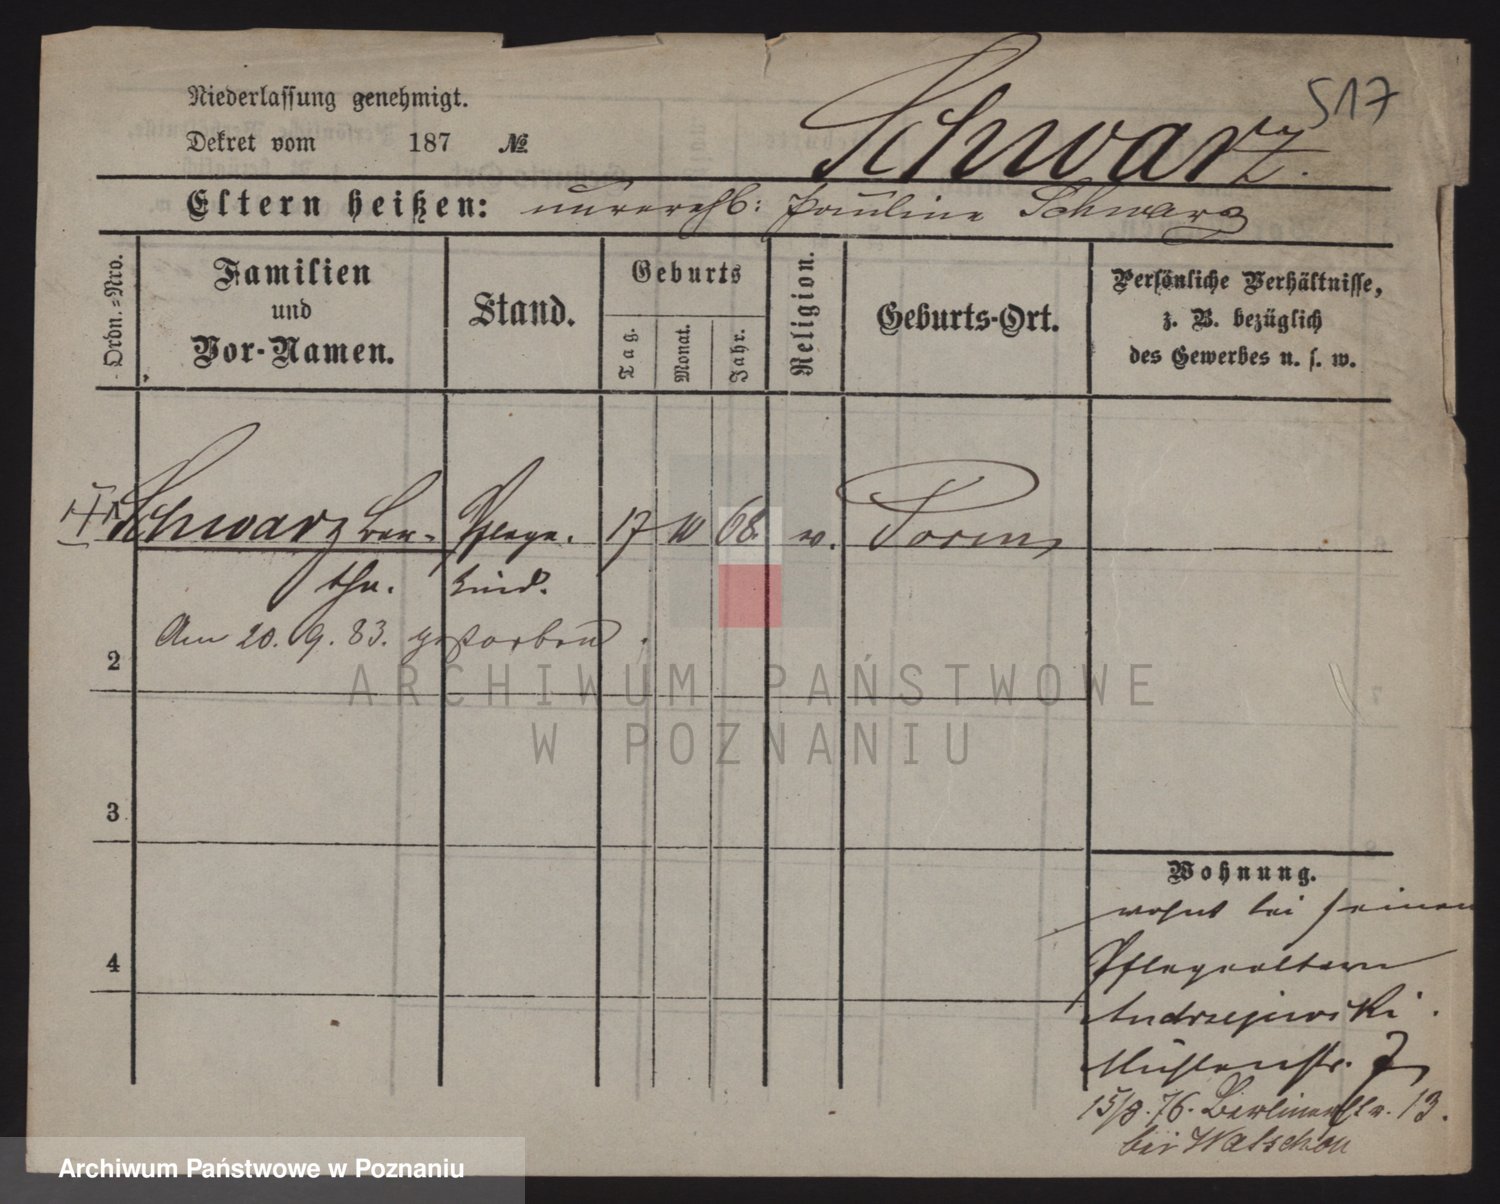 517
Niederlassung genehmigt.
Schwarz.
Dekret vom 187 №
Eltern heißen: unverehl: Pauline Schwarz
Ordn.-Nro.
Familien
und
Vor-Namen.
Stand.
Geburts
Tag.
Monat.
Jahr.
Religion.
Geburts-Ort.
Persönliche Verhältnisse,
z. B. bezüglich
des Gewerbes u. s. w.
Schwarz Ber- Pflege- 17 10 68. Posen
tha. kind.
Am 20. 9. 83. gestorben.
2
3
4
Wohnung.
wohnt bei seinen
Pflegeeltern
Andrzejewski.
Mühlenstr. 7
15/8. 76. Berlinerstr. 13.
bei
ARCHIWUM PAŃSTWOWE
W POZNANIU
Archiwum Państwowe w Poznaniu